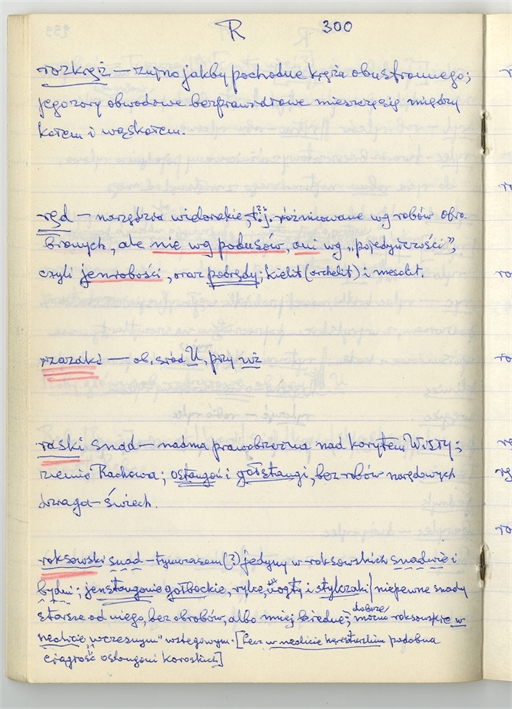 R 300
rozkręż — zużno jakby pochodne kręża obustronnego;
jego zory obwodowe bezprawidłowe mieszczą się między
kołem i wąskołem.
rząd — narzędzia widorakie, t.j. różnicowane wg robów obro-
bionych, ale nie wg podusów, ani wg „pojedyńczości”,
czyli jenorobości, oraz pobrędy; kielit (orchelit) i mesolit.
rzazaki — ob. śród U, przy uż
raski snad — nadma prawobrzeżna nad korytem Wisły;
ziemia Rachowa; ostangoń i gołstangi, bez robów narzędowych
drzaga-świech.
roksowski snad — tymczasem (?) jedyny w roksowskich snadwie i
bydni; jenstangonie gołbockie, rylce, wogły i stylczaki / niepewne snady
starsze od niego, bez obrobów, albo mniej biedne; dobrze
można roksowskie w
neolicie „wczesnym” wstęgowym. [Lecz w neolicie karstuckim podobna
ciągłość ostangoni karoskich]